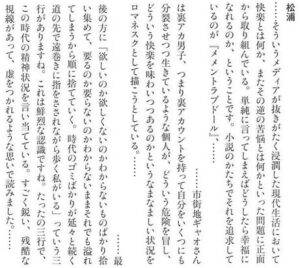 松浦
……そういうメディアが抜きがたく浸潤した現代生活において
快楽とは何か、またその逆の苦悩とは何かといった問題に正面
から取り組んでいる。単純に言ってしまえばどうしたら幸福に
なれるのか、ということです。小説のかたちでそれを追求して
いるのが、『メメントラブドール』、
……市街地ギャオさん
は裏アカ男子、つまり裏アカウントを持って自分をいくつにも
分裂させつつ生きているような個人が、どういう危険を冒し、
どういう快楽を味わいつつあるのかというなまなましい状況を
ロマネスクとして描こうとしている。
……最
後の方に「欲しいのか欲しくないのかわからないものばかり拾
い集めて、要るのか要らないのかわからないままそれも溢れ
てしまうから順に捨てていく。時代のゴミばかりが延々と続く
道の先で遠巻きに指をさされながら歩く私がいる」っていう三
行がありますね。これは鮮烈な認識ですよね。たったの三行で、
この時代の精神状況を言い当てている。すごく鋭い、残酷な
視線があって、虚をつかれるような思いで読みました。……